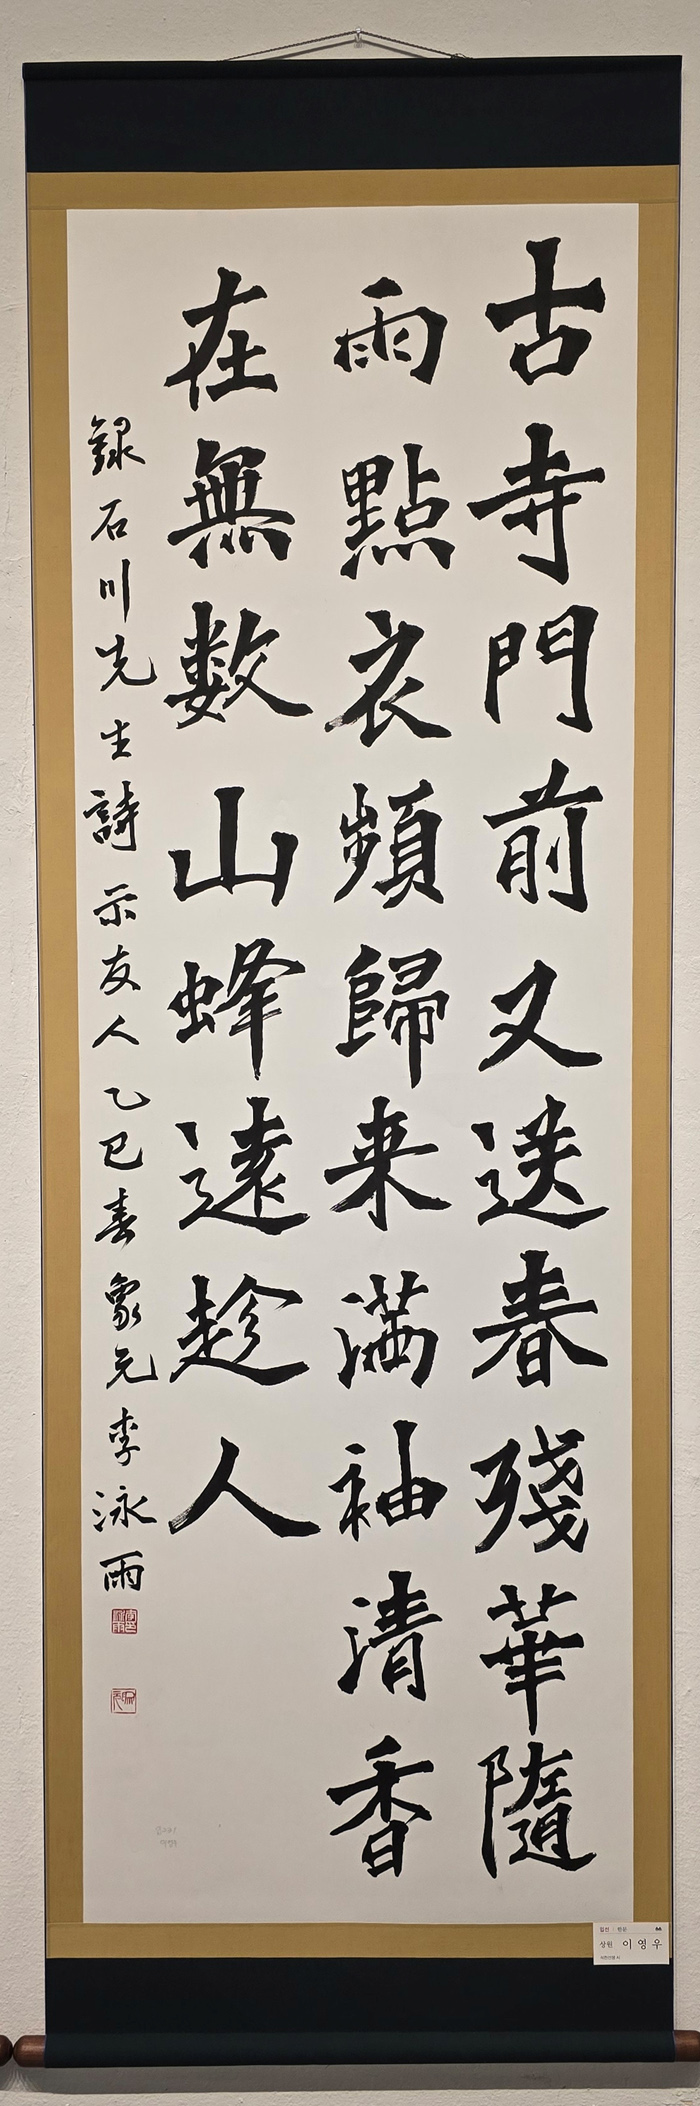 古寺門前又送春殘華隨
雨點衣頻歸来滿袖清香
在無數山蜂遠趁人
錄石川先生詩示友人乙巳春象元李泳雨
입선 한문 66
상원 이영우
석천선생 시